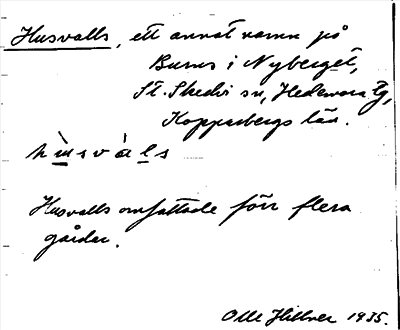 Husvalls, ett annat namn på
Burns i Nyberget,
St. Skedvi sn, Hedemora tg,
Kopparbergs län.
hùsvàls
Husvalls omfattade förr flera
gårdar.
Olle Hillver 1935.